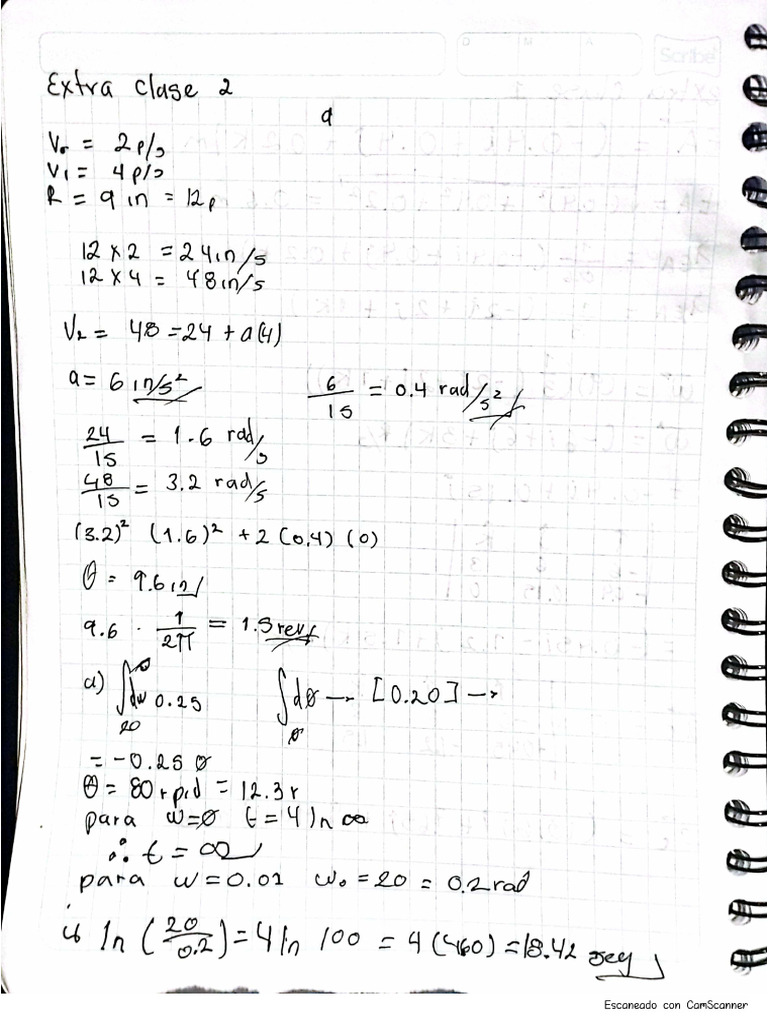 D M A Scribe
Extra Clase 2
a
V₀ = 2p/s
V₁ = 4p/s
R = 9 in = 12p
12 x 2 = 24in/s
12 x 4 = 48in/s
V₂ = 48 = 24 + a(4)
a = 6 in/s² 6/15 = 0.4 rad/s²
24/15 = 1.6 rad/s
48/15 = 3.2 rad/s
(3.2)² (1.6)² + 2 (0.4) (0)
θ = 9.6in
9.6 · 1/2π = 1.5rev
a) ∫ dw 0.25 ∫dø → [0.20] →
20 ø
= -0.25 ø
θ = 80 rad = 12.3r
para w=ø t = 4 ln ∞
∴ t = ∞
para w = 0.01 w₀ = 20 = 0.2 rad
ln (20/0.2) = 4 ln 100 = 4 (460) = 18.42 seg
Escaneado con CamScanner